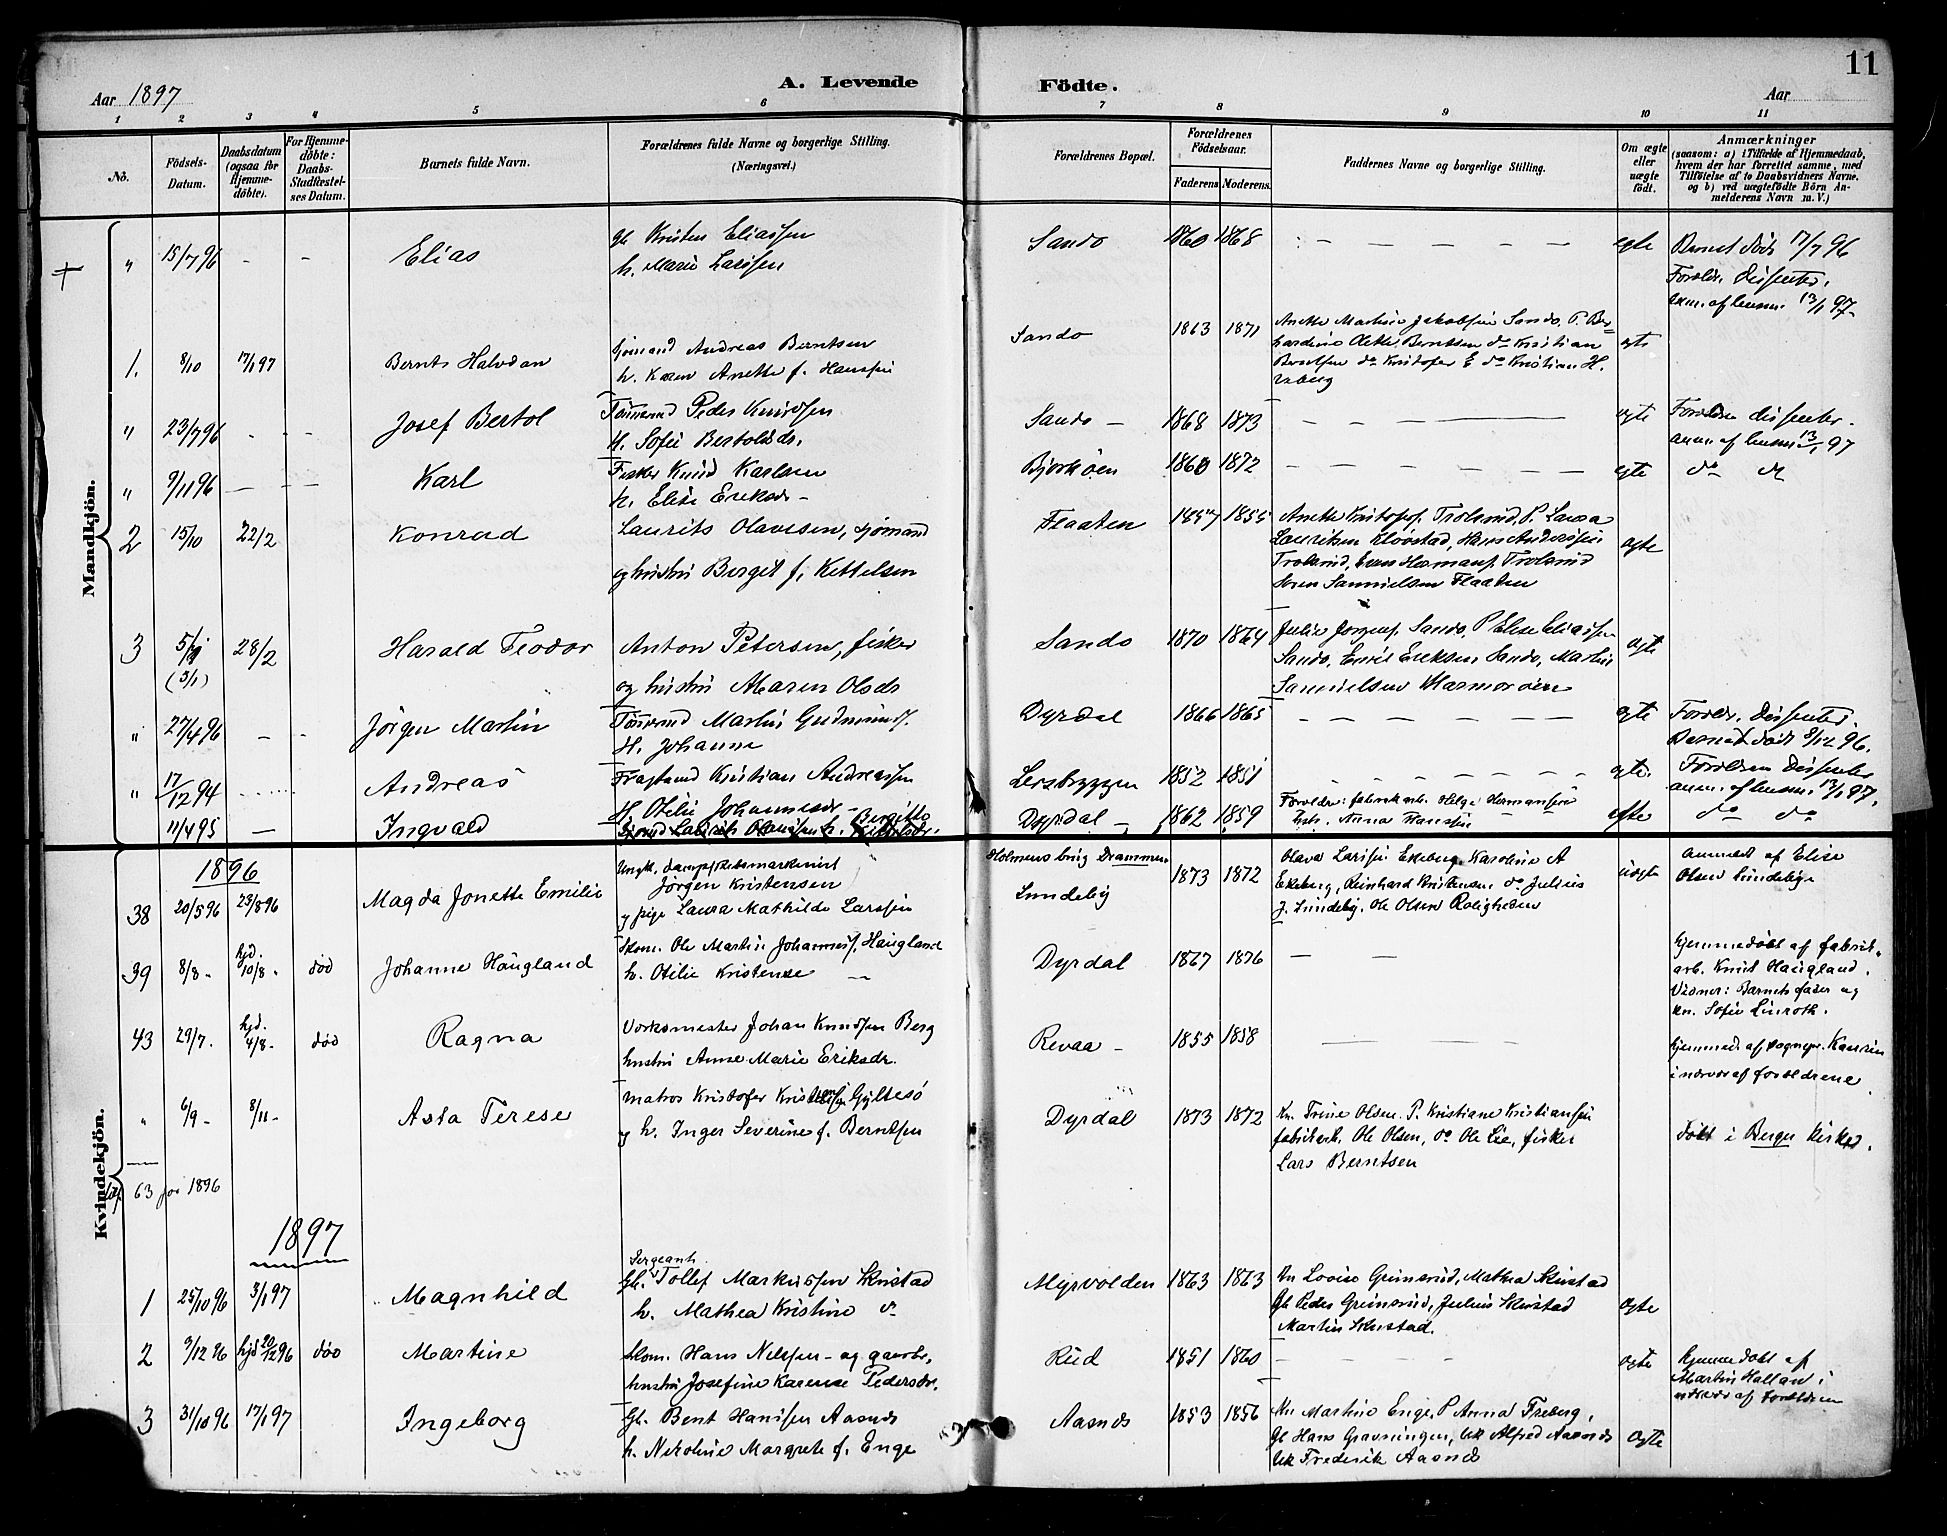 11
Aar 1897
A. Levende
Födte.
Aar
1 2 3 4 5 6 7 8 9 10 11
No.
Födsels-Datum.
Daabsdatum (ogsaa for Hjemme-döbte).
For Hjemme-döbte: Daabs-Stadfæstel-ses Datum.
Barnets fulde Navn.
Forældrenes fulde Navne og borgerlige Stilling.
(Næringsvei.)
Forældrenes Bopæl.
Forældrenes Födselsaar.
Faderens Moderens.
Faddernes Navne og borgerlige Stilling.
Om ægte eller uægte födt.
Anmærkninger
(saasom: a) i Tilfælde af Hjemmedaab, hvem der har forrettet samme, med Tilföielse af to Daabsvidners Navne, og b) ved uægtefödte Börn An-melderens Navn m. V.)
Mandkjön.
" 15/7 96 - - Elias
Gb. Kristen Eliassen
h. Marie Larssen
Sando 1860 1868 - - - - - ægte
Barnet död 17/7 96
Foreldr. Dissenter.
anm. af lensm. 13/1 97
1. 8/10 17/1 97 Bernts Halvdan
Sjömand Andreas Berntsen
h. Karen Anette f. Hanssen
Sando 1863 1871
Anette Martine Jakobsen Sando, P. Ber=
nardine Berntsen do Kristian
Berntsen do Kristofer E do Kristian H.
ægte
" 23/7 96 - - - Josef Bertol
Tömmermd Peder Knudsen
H. Sofie Bertolsdr.
Sando - 1868 1873 ægte
Foreldre dissenter.
anm. af lensm 13/1 97
" 9/11 96 - - - Karl
Fisker Knud Karlsen
h. Elise Eriksdr -
Bjorkøen 1860 1872 - - - - - ægte do do
2 15/10 22/2 Konrad
Laurits Olavesen, sjömand
og hustru Berget f. Kettelsen
Flaaten 1857 1855
Anette Kristofs. Trolsrud, P. Laura
Lauritsen Klovstad, Hans Anderssen
Trolsrud, Even Hermans. Trolsrud
Soren Samuelsen Flaaten
ægte
3 5/1 (3/1) 28/2 Harald Teodor
Anton Petersen, fisker
og hustru Maren Olsdr
Sando 1870 1864
Julie Jorgens. Sando, P Elise Eliassen
Sando, Emil Eriksen Sando, Martin
Samuelsen Marmorøen
ægte
" 27/4 96 - - Jörgen Martin
Martin Gudmunds.
H. Johanne
Dyrdal 1866 1865 - - - - - ægte
Foreldr. Dissenter.
Barnet död 8/12 96.
" 17/12 94 Andreas
Kristian Andreassen
H. Otilie Johannesdr -
Leirbryggen 1852 1851 - - - - - ægte.
Foreldre Dissenter
anm. af lensm. 13/1 97.
11/4 95 - Ingvald
Sjömd Laurits Olavesen h. Bergitte
Dyrdal - 1862 1859
Foreldre: fabrikarb. Helge Hermansen
Hstr. Anna Hanssen
ægte do do
Kvindekjön.
1896
38 20/5 96 23/8 96 Magda Jonette Emilie
Ungk. dampskibsmaskinist
Jörgen Kristensen
og pige Laura Mathilde Larssen
Holmensbrug Drammen
Lundeby
1873 1872
Olava Larssen Ekeberg, Karoline A
Ekeberg, Reinhard Kristensen do Julius
J. Lundeby, Ole Olsen Roligheden
uægte
Anmeldt af Elise
Olsen Lundeby
39 8/8 - hjd. 10/8 - död Johanne Haugland
Skom. Ole Martin Johanness. Haugland
h. Otilie Kristense -
Dyrdal 1867 1876 - -
hjemmedöbt af fabrik-
arb. Knut Haugland.
Vidner: Barnets fader og
kn. Sofie Linroth.
43 29/7 - hjd. 4/8 - död Ragna
Verksmester Johan Knudsen Berg
hustru Anne Marie Eriksdr.
Revaa - 1855 1858 - -
hjemmed. af sognepr. Kaurin
i nærvær af foreldrene
" 6/9 - 8/11 - Asta Terese
Matros Kristofer Kristensen Gyltesö
og h. Inger Severine f. Berntsen
Dyrdal 1873 1872
Kn. Trine Olsen. P. Kristiane Kristiansen
fabrikarb. Ole Olsen, do Ole Lie, fisker
Lars Berntsen
Döbt i Berger kirke.
63 for 1896
1897
1 25/10 96 3/1 97 Magnhild
Sergeant
Gb. Tollef Markussen Skustad
h. Mathea Kristine do
Myrvolden 1863 1863
Kn Lovise Grimsrud, Mathea Skustad
Gb Peder Grimsrud, Julius Skustad
Martin Skustad.
ægte
2 9/12 96 hjd 20/12 96 död Martine
Skom. Hans Nilssen - og gaardbr.
hustru Josefine Karense Pedersdr.
Rud 1851 1860 - - - ægte
hjemmedöbt af
Martin Hallan i
nærvær af foreldrene
3 31/10 96 17/1 97 Ingeborg
Gb. Bent Hanssen Aasnds
h. Nikoline Margrete f. Enge
Aasnds 1853 1856
Kn Martine Enge, P Anna Freberg,
Gb Hans Gravningen, Uk Alfred Aasnds
Uk Frederik Aasnds
ægte